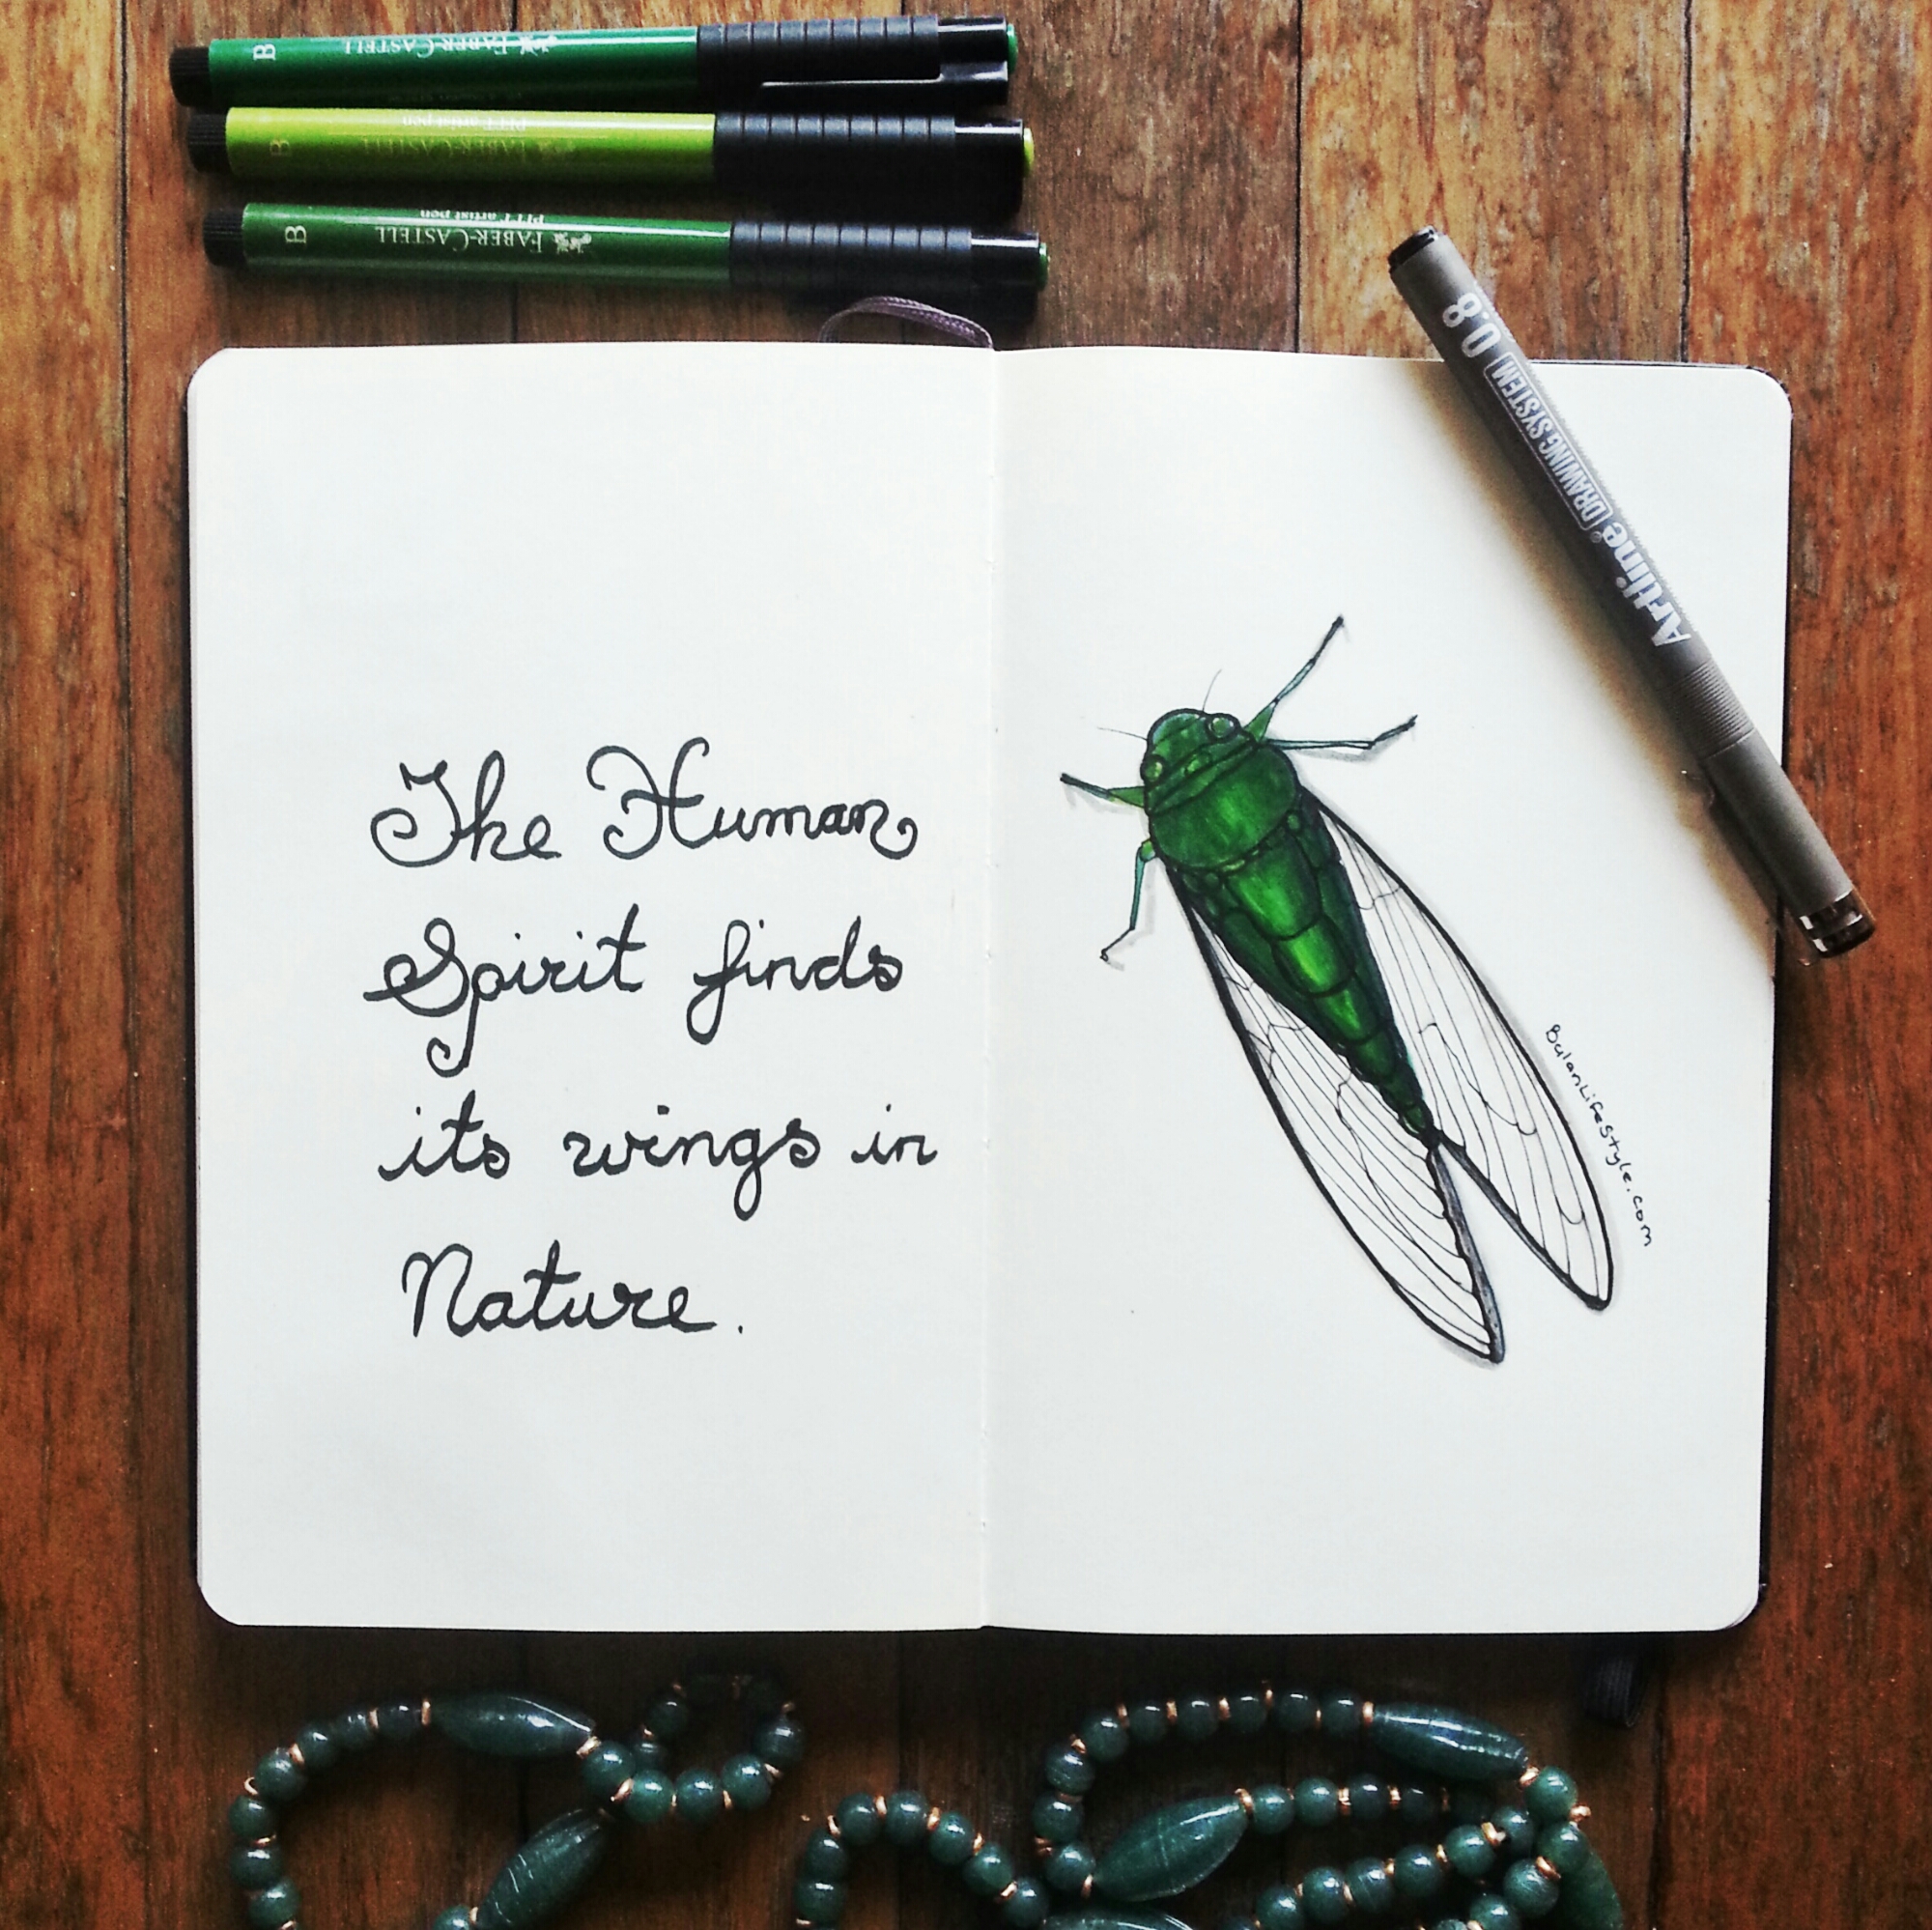 B FABER-CASTELL
B FABER-CASTELL
PITT artist pen
B FABER-CASTELL
PITT artist pen
Artline® DRAWING SYSTEM 0.8
The Human
Spirit finds
its wings in
Nature.
BulanLifestyle.com